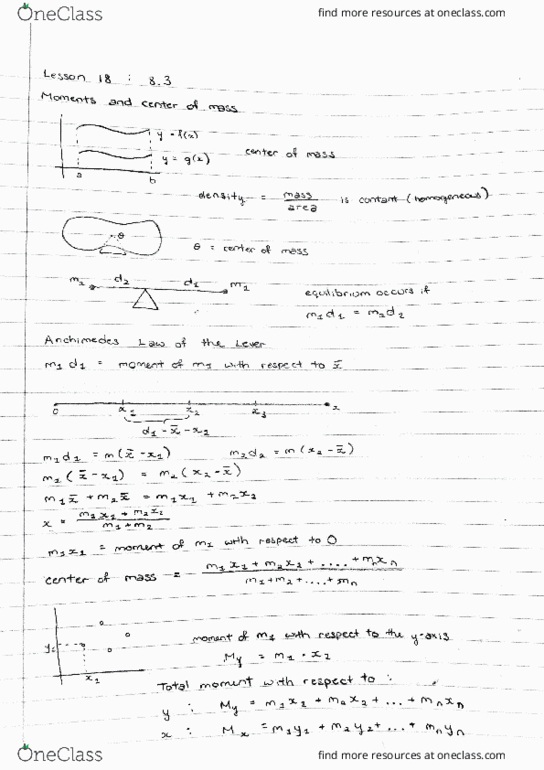 OneClass
find more resources at oneclass.com
Lesson 18 : 8.3
Moments and center of mass
y = f(x)
y = g(x)
center of mass
a b
density = mass / area is contant (homogeneous)
θ
θ = center of mass
m₂ d₂ d₁ m₁
equilibrium occurs if
m₁d₁ = m₂d₂
Archimedes Law of the Lever
m₁d₁ = moment of m₁ with respect to x̄
0 x₂ x₃ x
d₁ - x̄ - x₂
m₁d₁ = m(x̄ - x₁) m₂d₂ = m(x₂ - x̄)
m₁(x̄ - x₁) = m₂(x₂ - x̄)
m₁x̄ + m₂x̄ = m₁x₁ + m₂x₂
x = m₁x₁ + m₂x₂ / m₁ + m₂
m₁x₁ = moment of m₁ with respect to 0
center of mass = m₁x₁ + m₂x₂ + .... + mₙxₙ / m₁ + m₂ + .... + mₙ
x₁
moment of m₁ with respect to the y-axis
My = m₁ · x₂
Total moment with respect to :
y : My = m₁x₁ + m₂x₂ + ... + mₙxₙ
x : Mx = m₁y₁ + m₂y₂ + ... + mₙyₙ
OneClass
find more resources at oneclass.com